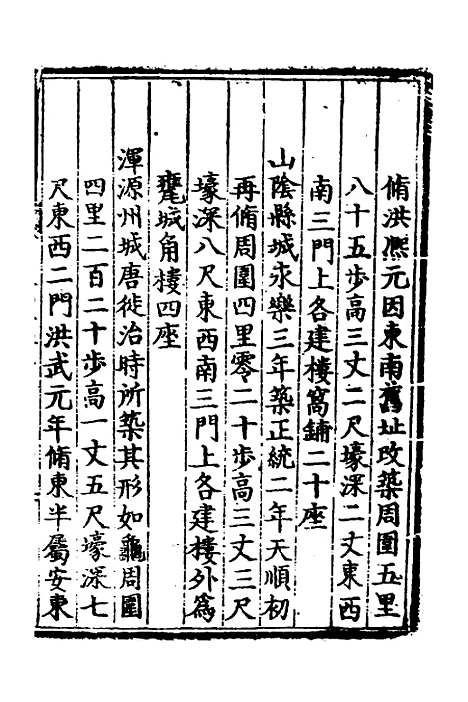 脩洪熈元因東南舊址改築周圍五里
八十五歩高三丈二尺壕深二丈東西
南三門上各建樓窩鋪二十座
山陰縣城永樂三年築正統二年天順初
再脩周圍四里零二十歩高三丈三尺
壕深八尺東西南三門上各建樓外爲
甕城角樓四座
渾源州城唐徙治時所築其形如龜周圍
四里二百二十歩高一丈五尺壕深七
尺東西二門洪武元年脩東半屬安東